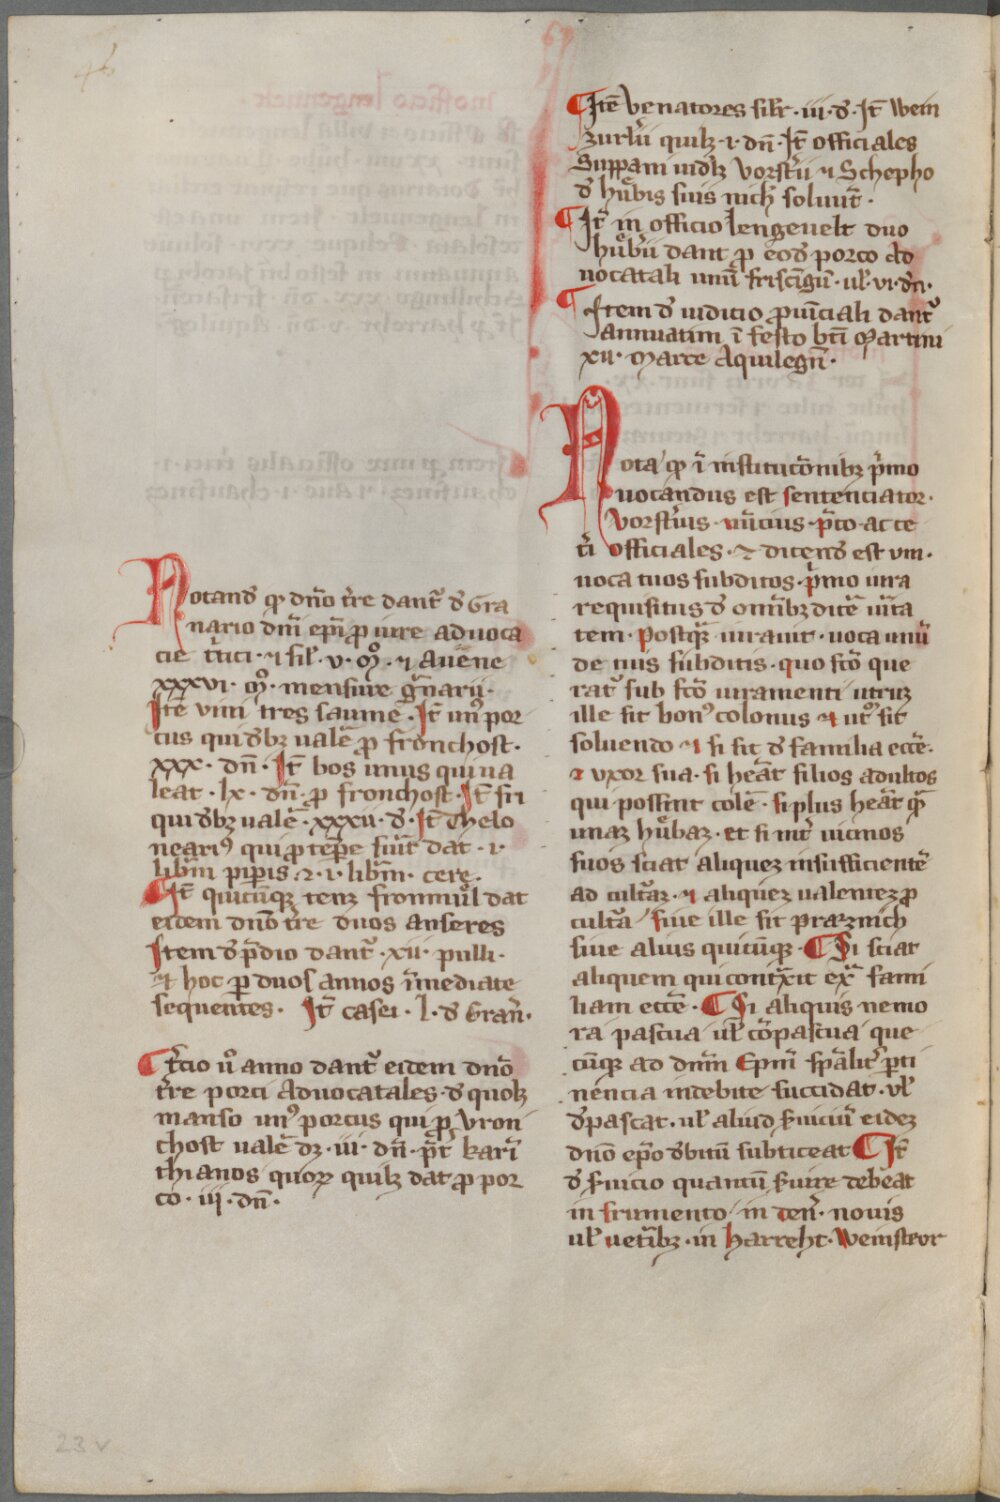 46
Notand͛ ꝙ dn̄o t̄re dant᷑ d͛ Gra
nario dn̄i ep̄i ꝓ iure aduoca
cie t͛tici · ⁊ sil̄ · v · m̊ · ⁊ Auene
xxxvi · m̊ · mensure g̃narii ·
Itē vini tres saumē · It̄ un᷒ por
cus qui d͛bꝫ ualē ꝓ fronchost ·
xxx · dn̄ · It̄ bos unus qui ua
leat · lx · dn̄ · ꝓ fronchost · It̄ fri
qui d͛bꝫ ualē · xxxii · d͛ · It̄ Thelo
neari᷒ qui ꝓ tēpe fuīt dat · i ·
libr̄m pip̄is · ⁊ · i · libr̄m · cere ·
It̄ quicūqꝫ tenꝫ fronmu̇l dat
eidem dn̄o t̄re duos anseres
Item d͛ p̄dio dant᷑ · xii · pulli ·
⁊ hoc ꝑ duos annos īmediate
sequentes · It̄ casei · l · d͛ Gran̄ ·
T͛cio u̾o anno dant᷑ eidem dn̄o
t̄re porci Aduocatales · d͛ quolꝫ
manso un᷒ porcus qui ꝓ vron
chost ualē dꝫ · iii · dn̄ · p̄t̄ kar̄i
thianos quoꝝ quilꝫ dat ꝓ por
co · iij · dn̄ ·
Itē venatores sil̄r · iii · d͛ · It̄ wein
zurlīi quilꝫ · i · dn̄ · It̄ officiales
Suppani iud̄ꝫ vorst̄ii ⁊ Schepho
d͛ hu̇bis suis nich̄ soluūt ·
It̄ in officio lengeuelt duo
hu̇b͛ii dant ꝓ eod͛ · porco ad
uocatali unū friscīgū · ul̄ · vi · dn̄ ·
Item d͛ iudicio ꝓuīciali dant᷑
Annuatim ī festo bt̄i Martini
xii · marce Aquilegn̄ ·
Nota ꝙ ī institucōnibꝫ p͛mo
uocandus est sentenciator ·
vorst͛ius · nūcius · p̄co · ac ce
t͛i officiales · ⁊ dicend͛ est vni ·
uoca tuos subditos · p͛mo iura
requisitus d͛ om̄ibꝫ dic̄e u͛ita
tem · postqꝫ̄ iurauit · uoca unū
de tuis subditis · quo fc̄o que
rat᷑ sub fc̄o iuramenti utrūꝫ
ille sit bon᷒ colonus ⁊ utͦ sit
soluendo ⁊ si sit d͛ familia ecc̄e ·
⁊ vxor sua · si hēat filios adultos
qui possint colē · si plus hēat qꝫ̄
unaꝫ hu̇baꝫ · et si int͛ uicinos
suos sciat aliqueꝫ insufficientē
ad cultaꝫ̄ · ⁊ aliqueꝫ ualenteꝫ ꝓ
cultā / siue ille sit præznich
siue alius quicūqꝫ · Si sciat
aliquem qui contᷓxit ex͛ fami
liam ecc̄e · Si aliquis nemo
ra pascua ul̄ cōpascua que
cūqꝫ ad dn̄m Epm̄ sp̄alit͛ ꝑti
nencia indebite succidat · vl̄
d͛pascat · ul̄ aliud s͛uiciū eideꝫ
dn̄o epō d͛bitū subticeat It̄
d͛ s͛uicio quantū s͛uire debeat
in frumento / in den̄ · nouis
ul̄ uet͛ibꝫ · in harreht · weinsteor
23 v